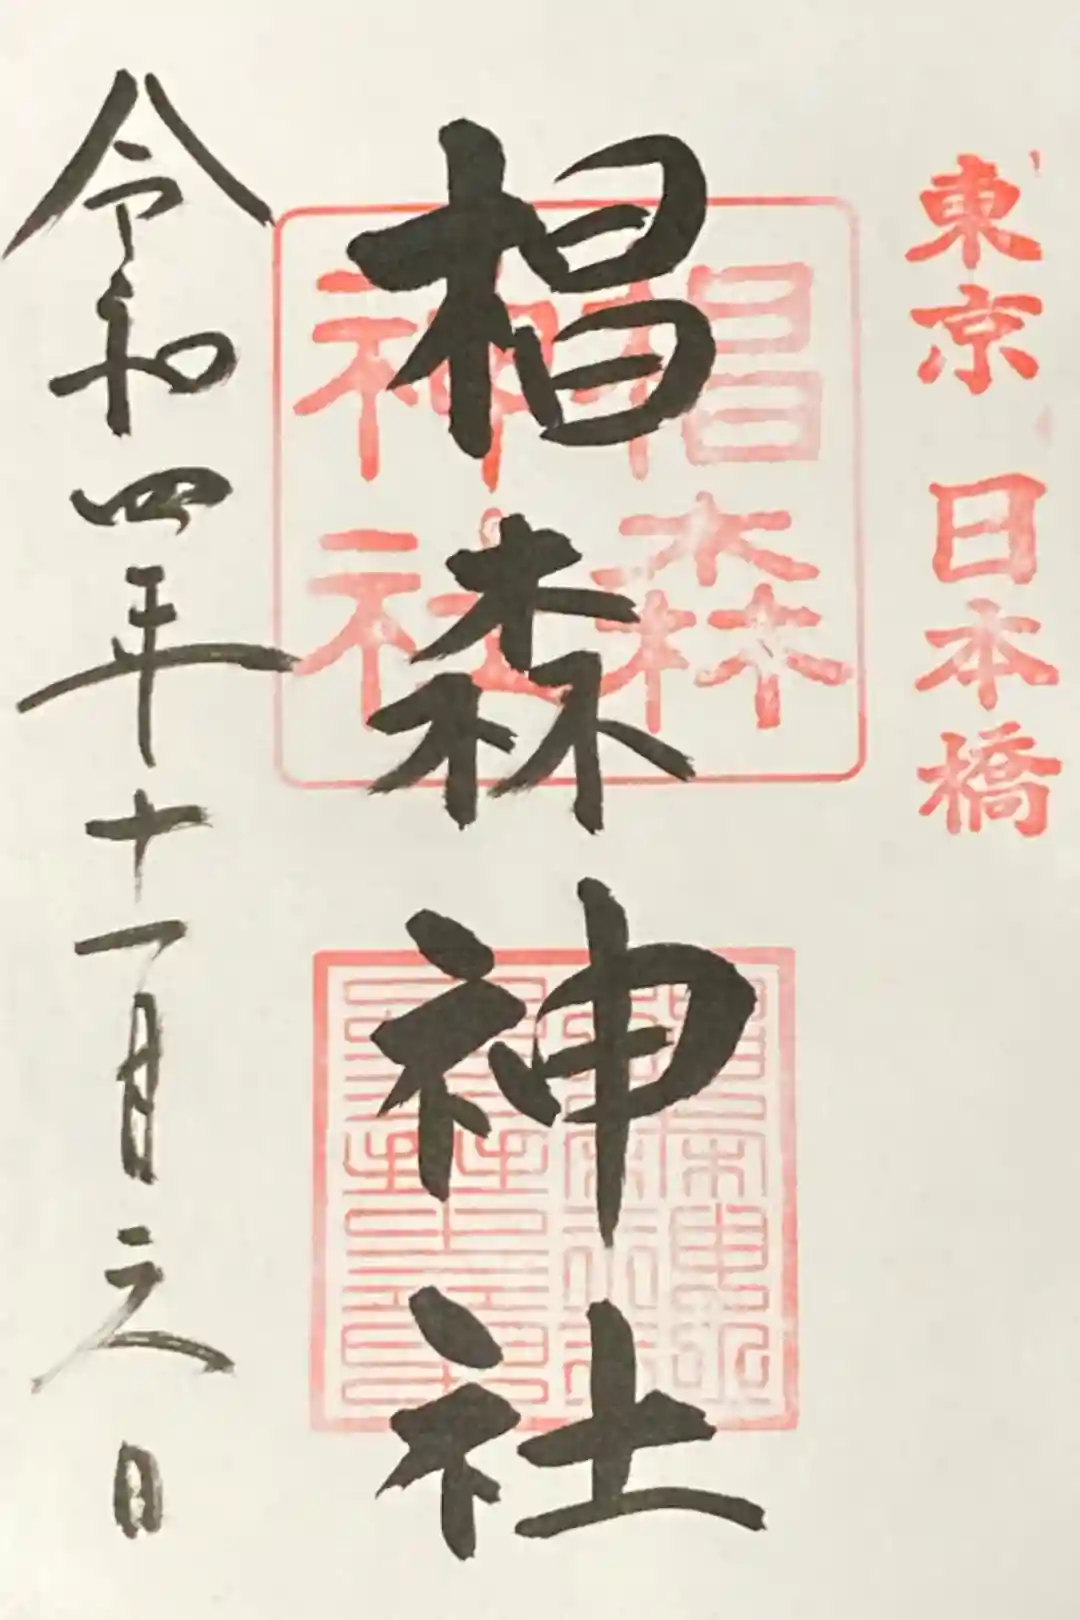 東京 日本橋
椙森神社
椙森
神社
令和四年十一月 日